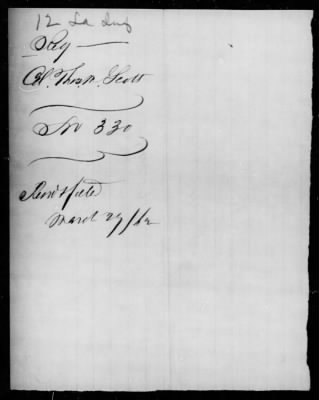 12 La Inf
Pay
Col. Thos. M. Scott
No 330
Recd & filed
March 27/62